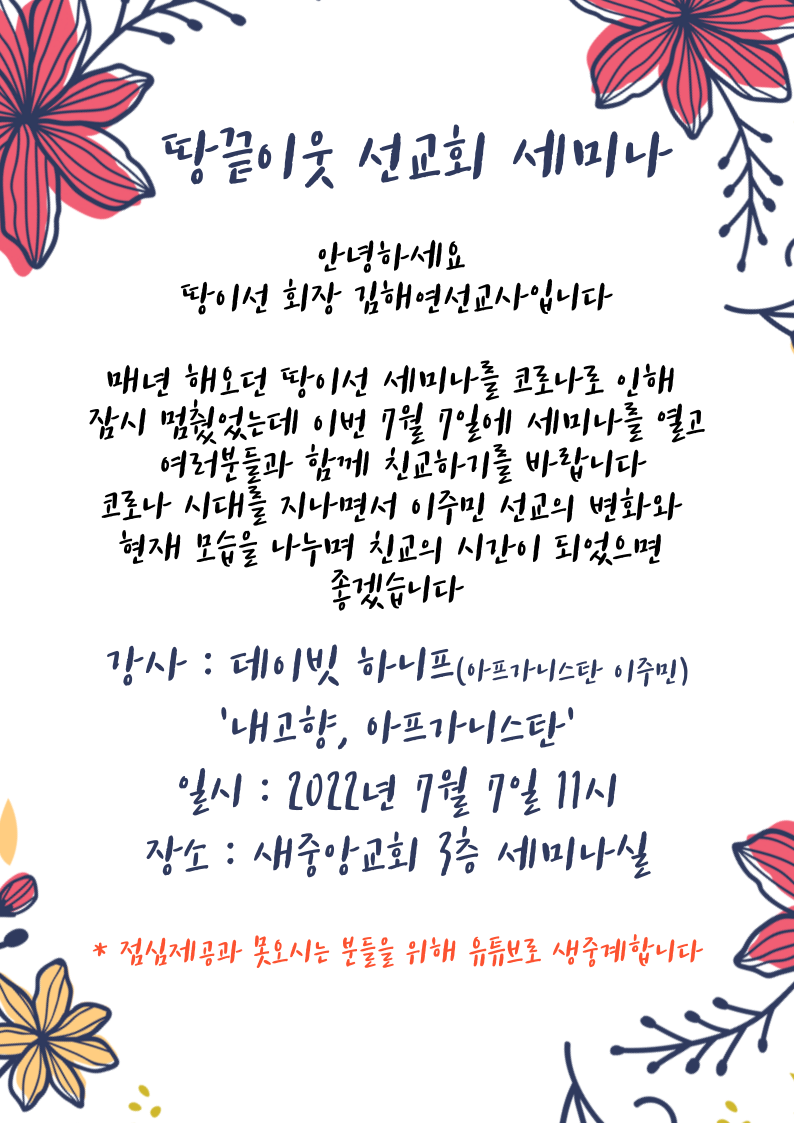 땅끝이웃 선교회 세미나
안녕하세요
땅이선 회장 김해연선교사입니다
매년 해오던 땅이선 세미나를 코로나로 인해
잠시 멈췄었는데 이번 7월 7일에 세미나를 열고
여러분들과 함께 친교하기를 바랍니다
코로나 시대를 지나면서 이주민 선교의 변화와
현재 모습을 나누며 친교의 시간이 되었으면
좋겠습니다
강사 : 데이빗 하니프(아프가니스탄 이주민)
'내고향, 아프가니스탄'
일시 : 2022년 7월 7일 11시
장소 : 새중앙교회 3층 세미나실
* 점심제공과 못오시는 분들을 위해 유튜브로 생중계합니다